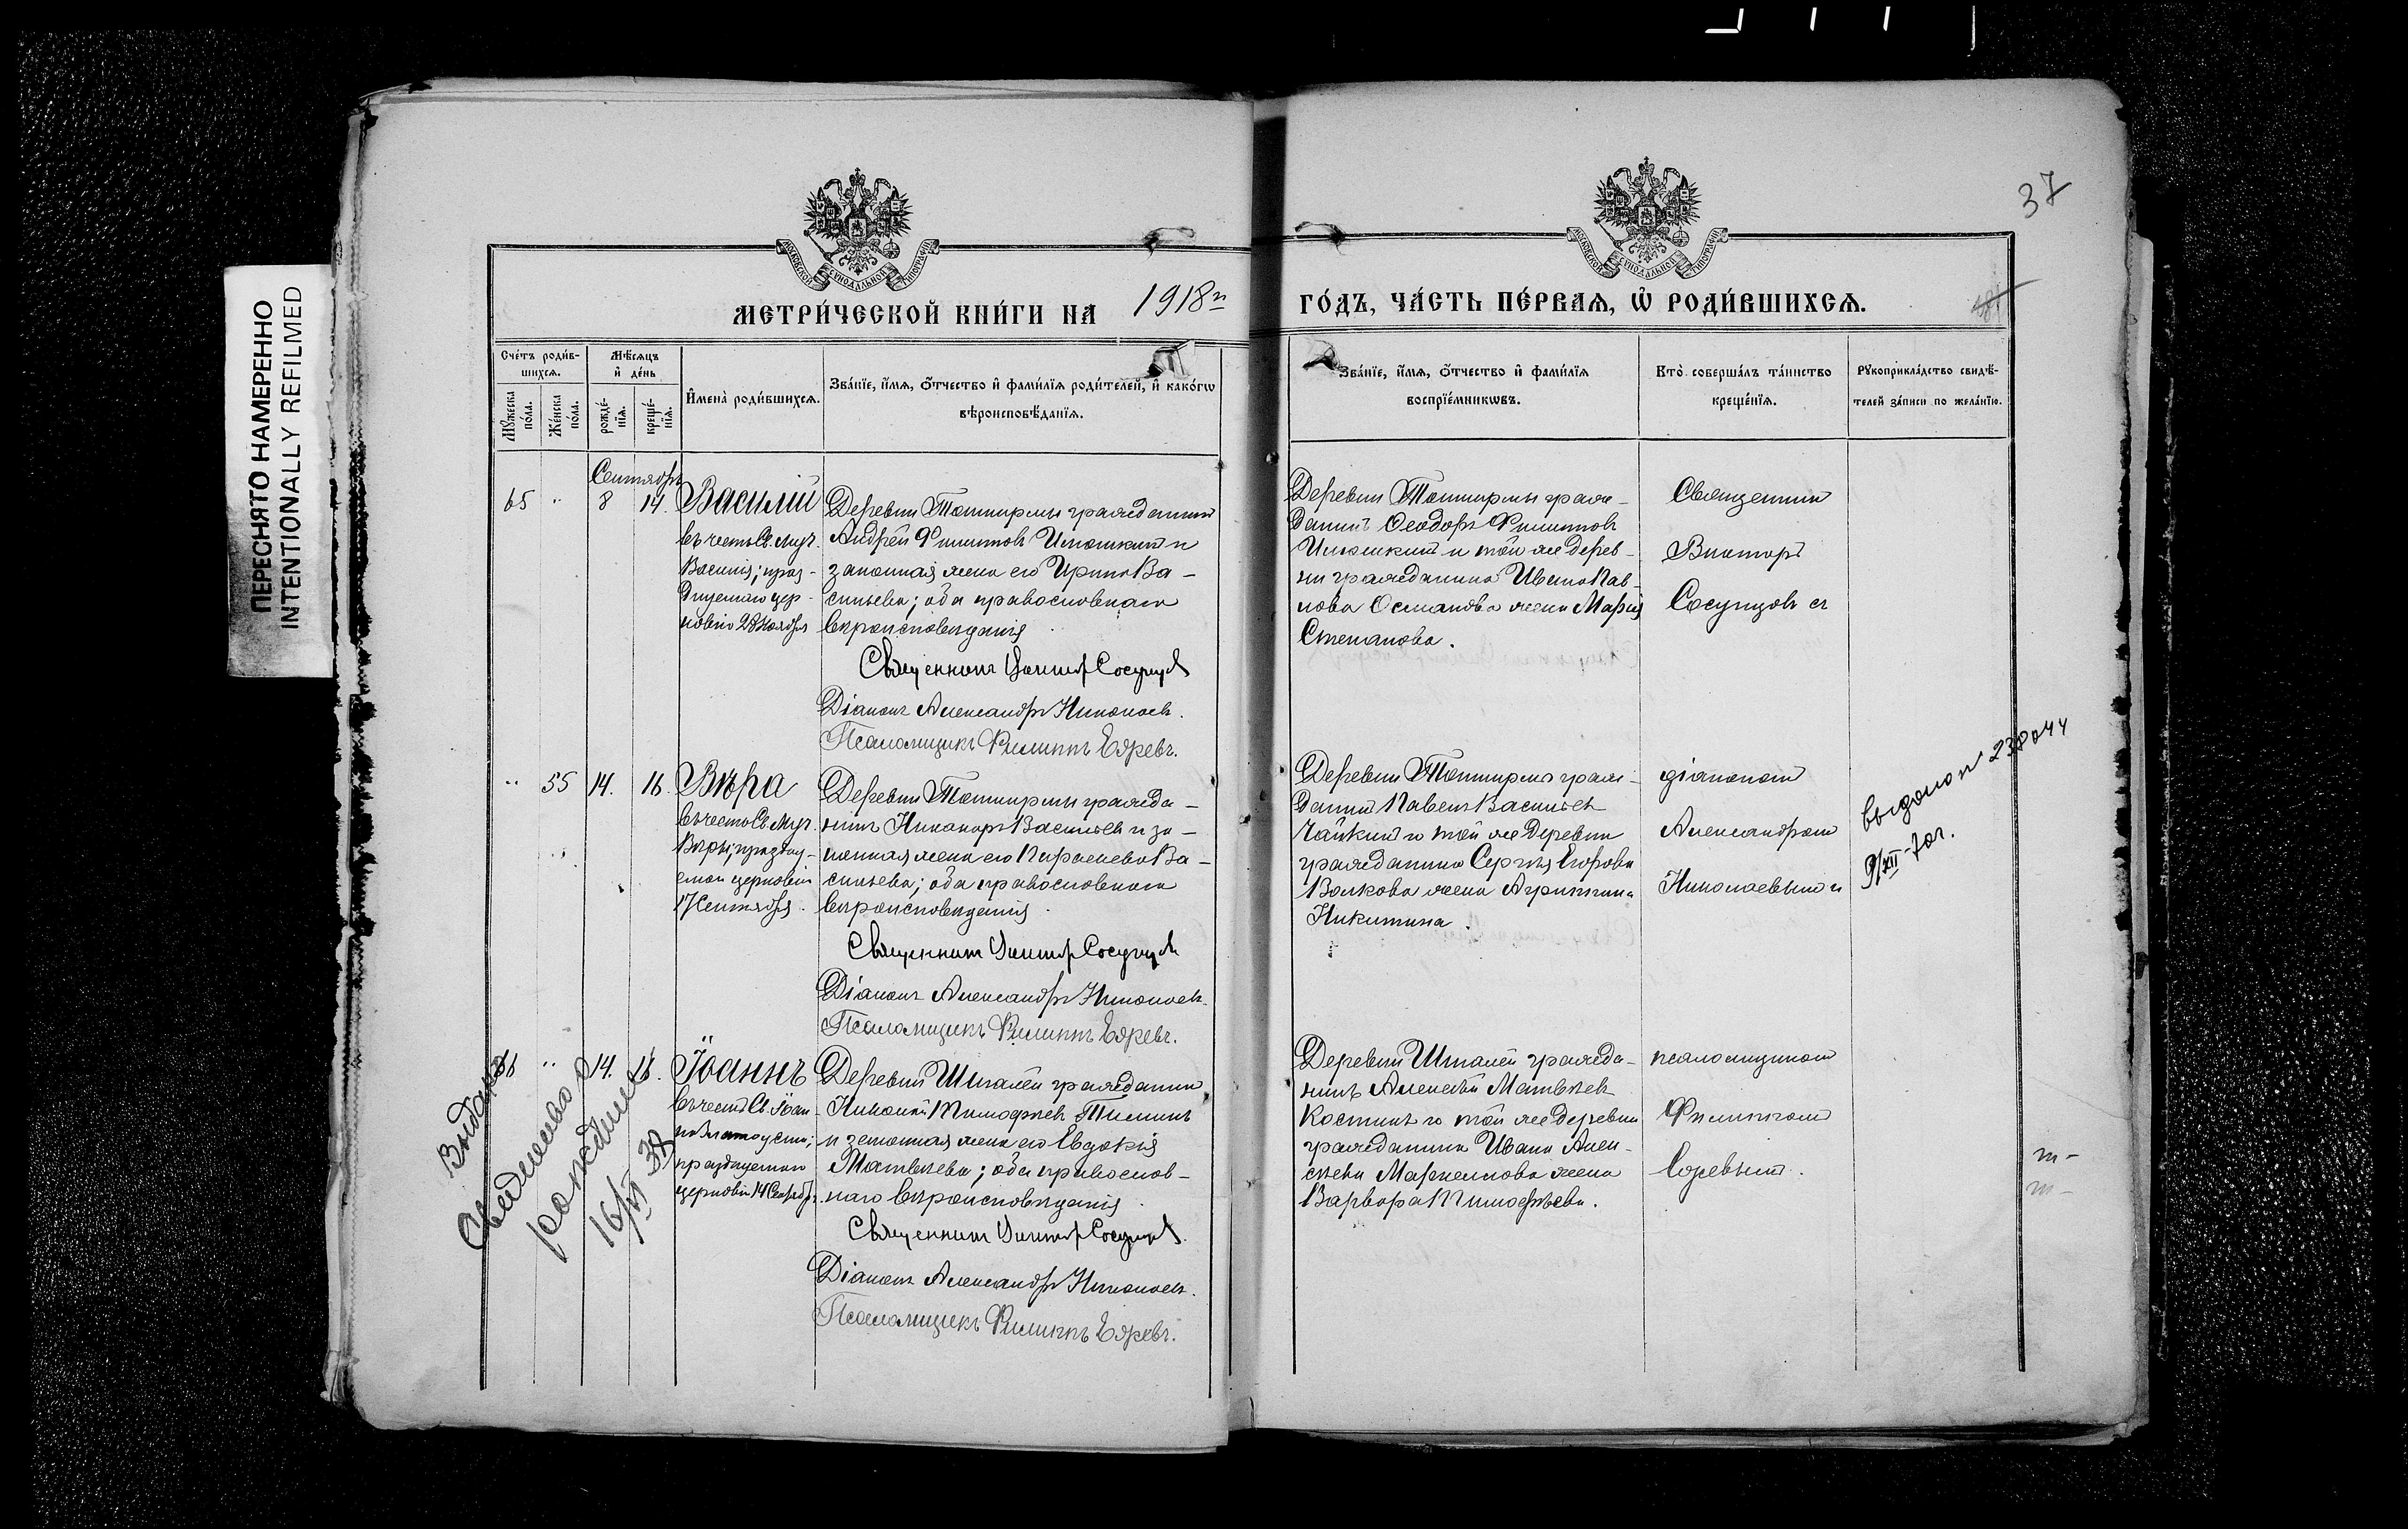 37
ПЕРЕСНЯТО НАМЕРЕННО
INTENTIONALLY REFILMED
МОСКОВСКОЙ СѴНОДАЛЬНОЙ ТИПОГРАФІИ
МОСКОВСКОЙ СѴНОДАЛЬНОЙ ТИПОГРАФІИ
МЕТРИ́ЧЕСКОЙ КНИ́ГИ НА 1918 г. ГО́ДЪ, ЧА́СТЬ ПЕ́РВАѦ, Ѡ҆ РОДИ́ВШИХСѦ.
Сче́тъ роди́в-
шихсѧ.
Мꙋ́жеска по́ла.
Же́нска по́ла.
Мѣ́сѧцъ
и҆ де́нь
рожде́-
нїѧ.
креще́-
нїѧ.
И҆мена̀ роди́вшихсѧ.
Зва́нїе, и҆́мѧ, ѻ҆́тчество и҆ фами́лїѧ роди́телей, и҆ како́гѡ
вѣроисповѣ́данїѧ.
Зва́нїе, и҆́мѧ, ѻ҆́тчество и҆ фами́лїѧ
воспрїе́мникѡвъ.
Кто̀ соверша́лъ та́инство
креще́нїѧ.
Рꙋкоприкла́дство свидѣ́-
телей за́писи по жела́нїю.
Сентябрь
65 " 8 14.
Василій
въ честь Св. муч.
Василія; праз-
днуемаго цер-
ковію 28 Ноября
Деревни Тонширмы гражданинъ
Андрей Филипповъ Илюшкинъ и
законная жена его Ирина Ва-
сильева; оба православнаго
вѣроисповѣданія
Священникъ Викторъ Сосунцовъ
Діаконъ Александръ Николаевъ.
Псаломщикъ Филиппъ Егоревъ.
Деревни Тонширмы граж-
данинъ Ѳеодоръ Филипповъ
Илюшкинъ и той же дерев-
ни гражданина Ивана Пав-
лова Османова жена Марія
Степанова.
Священникъ
Викторъ
Сосунцовъ съ
" 55 14. 16.
Вѣра
въ честь Св. муч.
Вѣры; празdну-
емой церковію
17 Сентября.
Деревни Тонширмы гражда-
нинъ Никаноръ Васильевъ и за-
конная жена его Параскева Ва-
сильева; оба православнаго
вѣроисповѣданія
Священникъ Викторъ Сосунцовъ
Діаконъ Александръ Николаевъ.
Псаломщикъ Филиппъ Егоревъ.
Деревни Тонширмы граж-
данинъ Павелъ Васильевъ
Чайкинъ и той же деревни
гражданина Сергѣя Егорова
Волкова жена Агриппина
Никитина.
діакономъ
Александромъ
Николаевымъ и
9/XII-70г.
66 " 14. 16.
Іоаннъ
въ честь Св. Іоан-
на Златоуста;
празднуемаго
церковію 14 Сентября.
Деревни Шигалей гражданинъ
Николай Тимофѣевъ Тиминъ
и законная жена его Евдокія
Матвѣева; оба православ-
наго вѣроисповѣданія
Священникъ Викторъ Сосунцовъ.
Діаконъ Александръ Николаевъ.
Псаломщикъ Филиппъ Егоревъ.
Деревни Шигалей гражда-
нинъ Алексѣй Матвѣевъ
Костинъ и той же деревни
гражданина Ивана Алек-
сѣева Маркелова жена
Варвара Тимофѣева.
псаломщикомъ
Филиппомъ
Егоревымъ.
Выдано
Сведение о
рождении